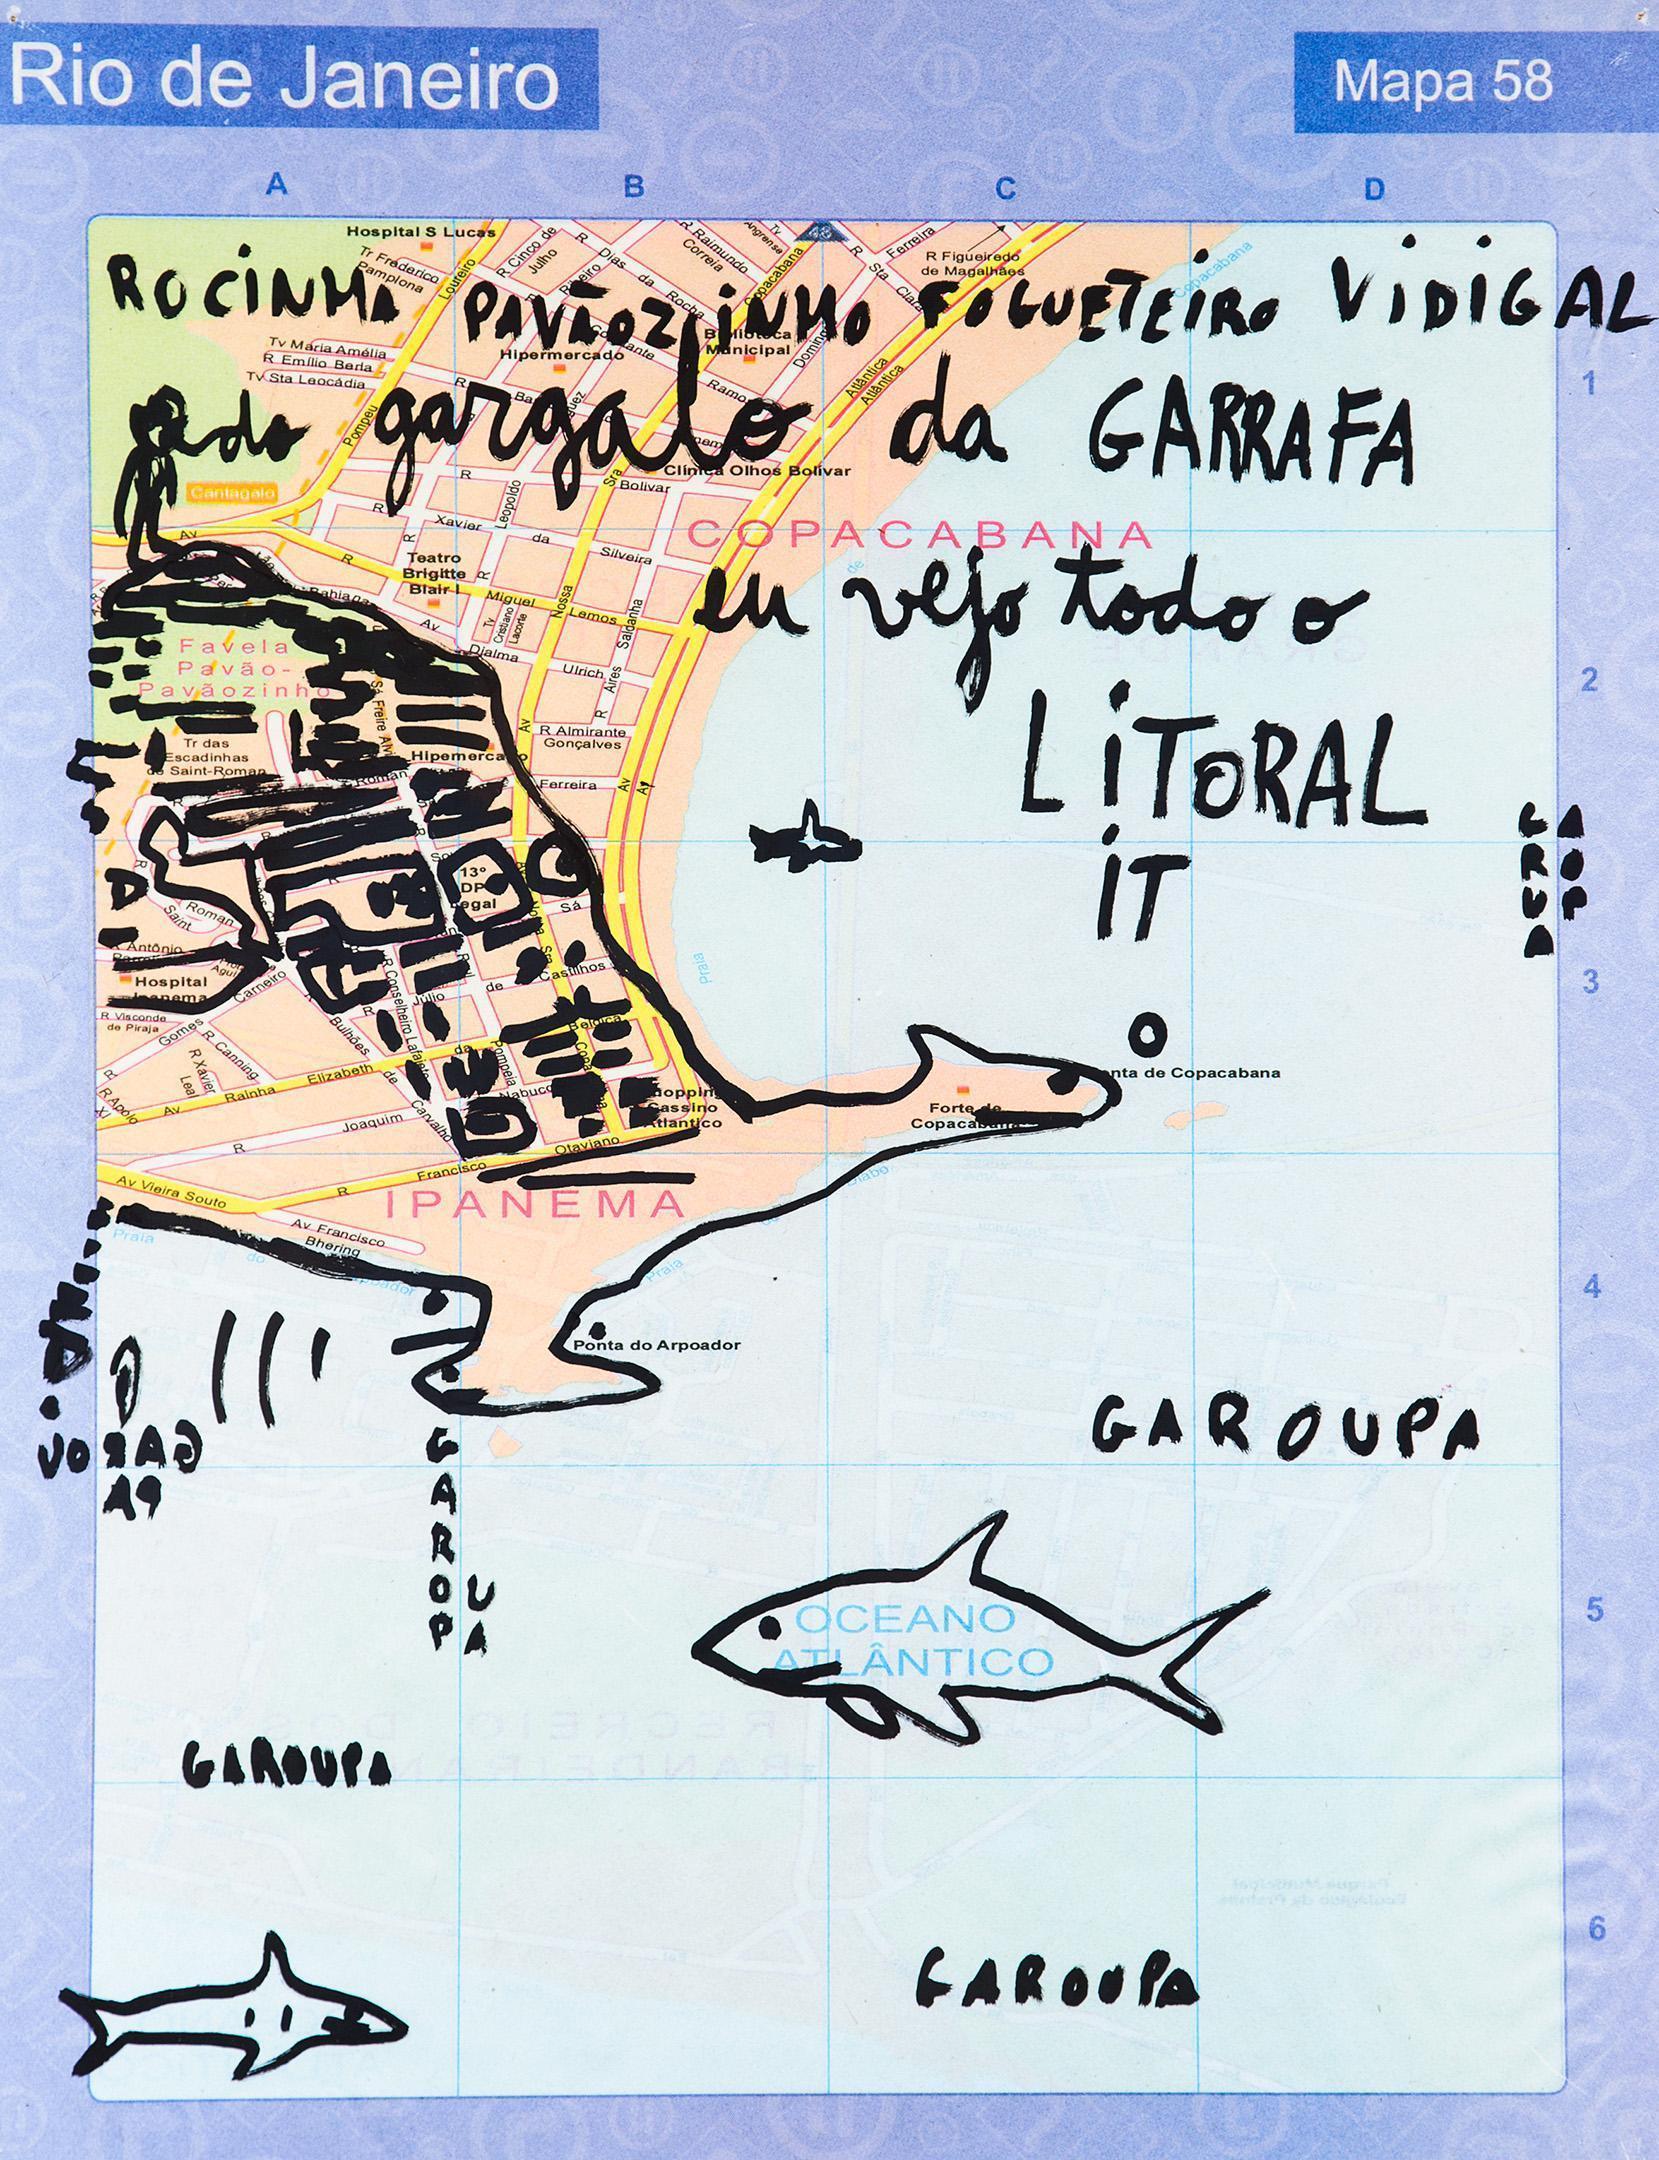 Rio de Janeiro
Mapa 58
A B C D
Hospital S Lucas
48
Tr Frederico
Pamplona
Loureiro
R Cinco de
Julho
R Dias da Rocha
R Raimundo
Correia
Tv
Angrense
Copacabana
R Sta Clara
Ferreira
R Figueiredo
de Magalhães
Copacabana
ROCINHA PAVÃOZINHO FOGUETEIRO VIDIGAL
Tv Maria Amélia
R Emílio Berla
Tv Sta Leocádia
Hipermercado
Municipal
Atlântica
Atlântica
1
Pompeu
gargalo da GARRAFA
Clínica Olhos Bolivar
R Bolivar
Sra
Cantagalo
Leopoldo
R Xavier da Silveira
COPACABANA
Av
Teatro
Brigitte
Blair I
R Miguel Lemos
Nossa
Saldanha
Tv
Cristiano
Lacorte
eu vejo todo o
Bahiana
Av
Djalma Ulrich
Aires
R
Favela
Pavão-
Pavãozinho
2
LITORAL
R Almirante
Gonçalves
Tr das
Escadinhas
de Saint-Roman
Hipemercado
Roman
Ferreira
Av
IT
13º
DP
Legal
Sá
R Saint Roman
R Antônio
Hospital
Ipanema
Castilhos
Praia
3
R Visconde
de Piraja
Gomes Carneiro
R Canning
R Xavier
Leal
Bulhões
R Conselheiro Lafaiete
Júlio de
O
Ponta de Copacabana
Forte de
Copacabana
Av Rainha Elizabeth da
Pompeia
Nabuco
Shopping
Cassino
Atlantico
R Apolo
R Joaquim
de Carvalho
R Francisco Otaviano
Av Vieira Souto
IPANEMA
Av Francisco
Bhering
Praia do Arpoador
Diabo
Praia
4
Ponta do Arpoador
GAROUPA
GAROUPA
OCEANO
ATLÂNTICO
5
GAROUPA
6
GAROUPA